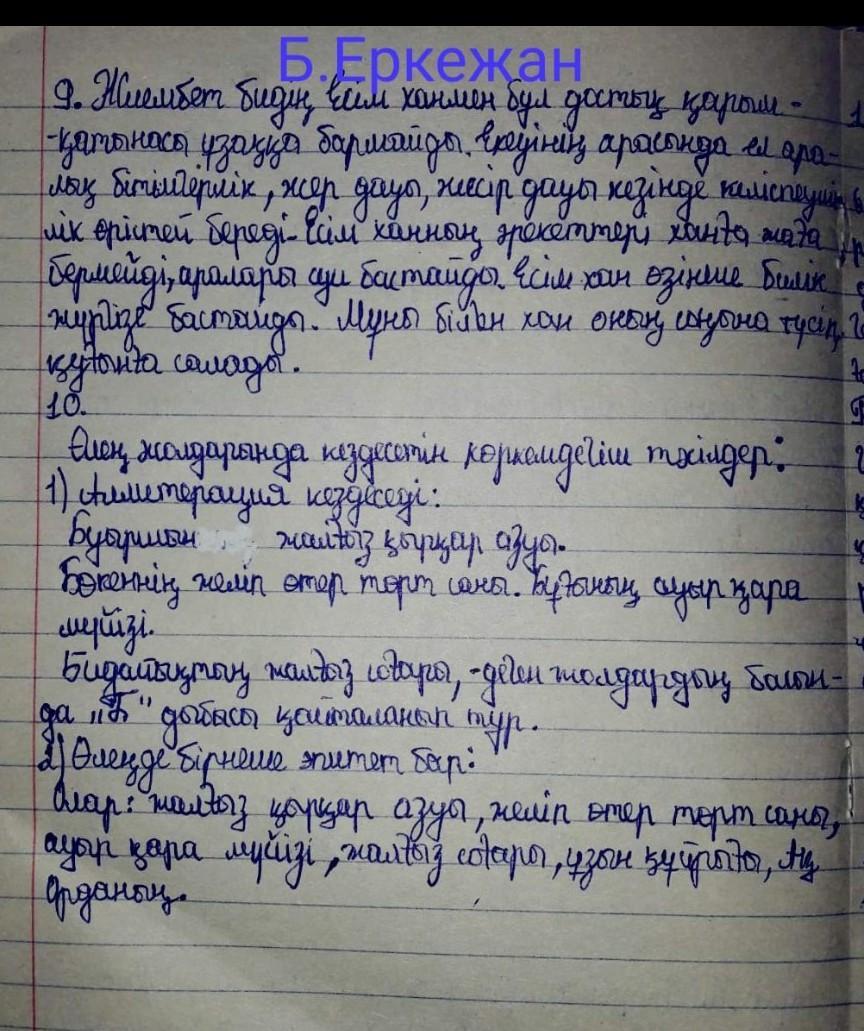 Б.Еркежан
9. Жиембет бидің Есім ханмен бұл достық қарым-
-қатынасы ұзаққа бармайды. Екеуінің арасында ел ара-
лық бітімгерлік, жер дауы, жесір дауы кезінде келіспеушіл
лік өрістей береді. Есім ханның әрекеттері ханға жаға
бермейді, аралары суи бастайды. Есім хан өзінше билік
жүргізе бастайды. Мұны білген хан оның соңына түсіп,
құғынға салады.
10.
Өлең жолдарында кездесетін көркемдегіш тәсілдер:
1) Аллитерация кездеседі:
Буыршын жалғыз қырқар азуы.
Бөкеннің желіп өтер төрт саны. Бұғының ауыр қара
мүйізі.
Бидайықтың жалғыз соғары, -деген жолдардың басын-
да "Б" дыбысы қайталанып тұр.
2) Өлеңде бірнеше эпитет бар:
Олар: жалғыз қырқар азуы, желіп өтер төрт саны,
ауыр қара мүйізі, жалғыз соғары, ұзын құйрығы, Ақ
Орданың.